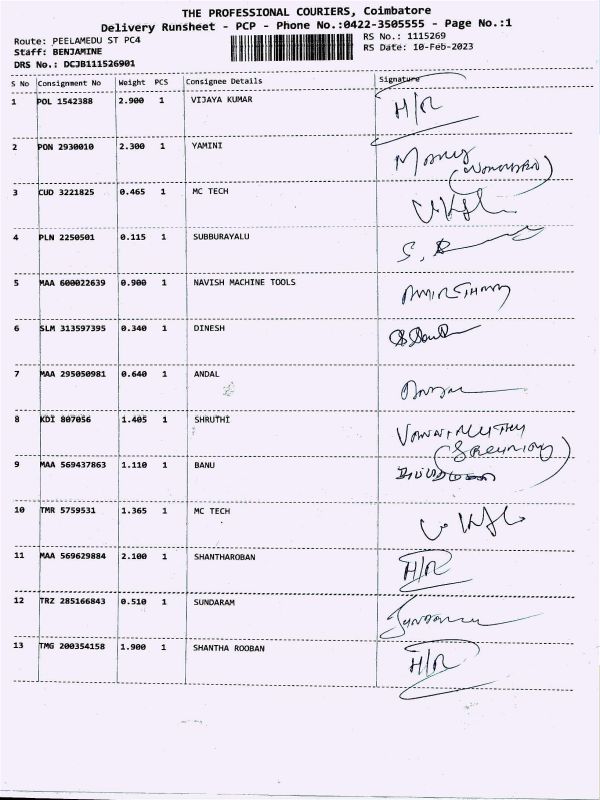 THE PROFESSIONAL COURIERS, Coimbatore
Delivery Runsheet - PCP - Phone No.:0422-3505555 - Page No.:1
Route: PEELAMEDU ST PC4
RS No.: 1115269
Staff: BENJAMINE
RS Date: 10-Feb-2023
DRS No.: DCJB111526901
S No Consignment No Weight PCS Consignee Details Signature
1 POL 1542388 2.900 1 VIJAYA KUMAR H/R
2 PON 2930010 2.300 1 YAMINI
3 CUD 3221825 0.465 1 MC TECH
4 PLN 2250501 0.115 1 SUBBURAYALU
5 MAA 600022639 0.900 1 NAVISH MACHINE TOOLS
6 SLM 313597395 0.340 1 DINESH
7 MAA 295050981 0.640 1 ANDAL
8 KDI 807056 1.405 1 SHRUTHI
9 MAA 569437863 1.110 1 BANU
10 TMR 5759531 1.365 1 MC TECH
11 MAA 569629884 2.100 1 SHANTHAROBAN H/R
12 TRZ 285166843 0.510 1 SUNDARAM
13 TMG 200354158 1.900 1 SHANTHA ROOBAN H/R